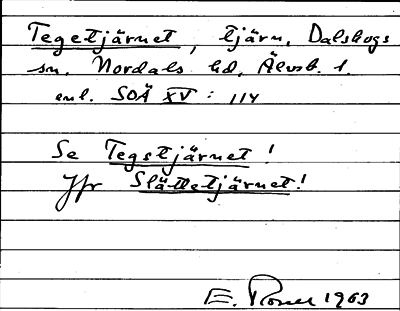 Tegetjärnet, tjärn, Dalskogs
sn, Nordals hd, Älvsb. l.
enl. SOÄ XV : 114
Se Tegstjärnet!
Jfr Slättetjärnet!
E. 1963